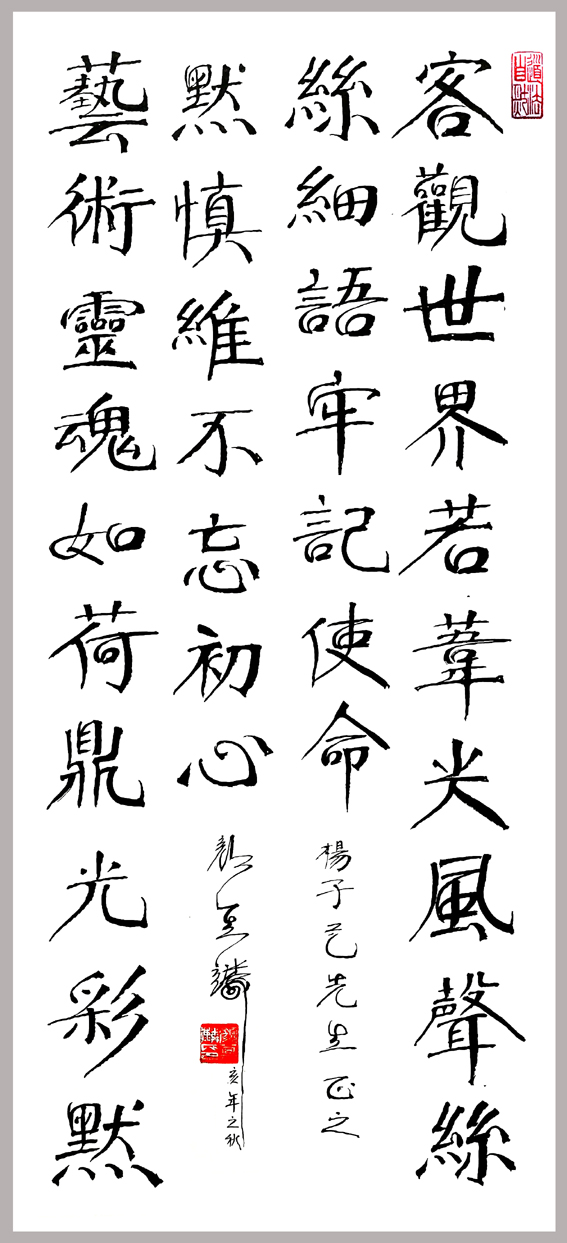 道法自然
客觀世界若葦火風聲絲
絲細語牢記使命
楊子 先生正之
藝術靈魂如荷鼎光彩默
默慎維不忘初心
亥年之秋